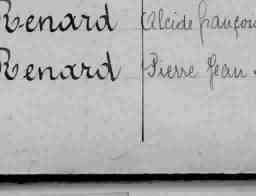 Renard Alcide françois
Renard Pierre Jean